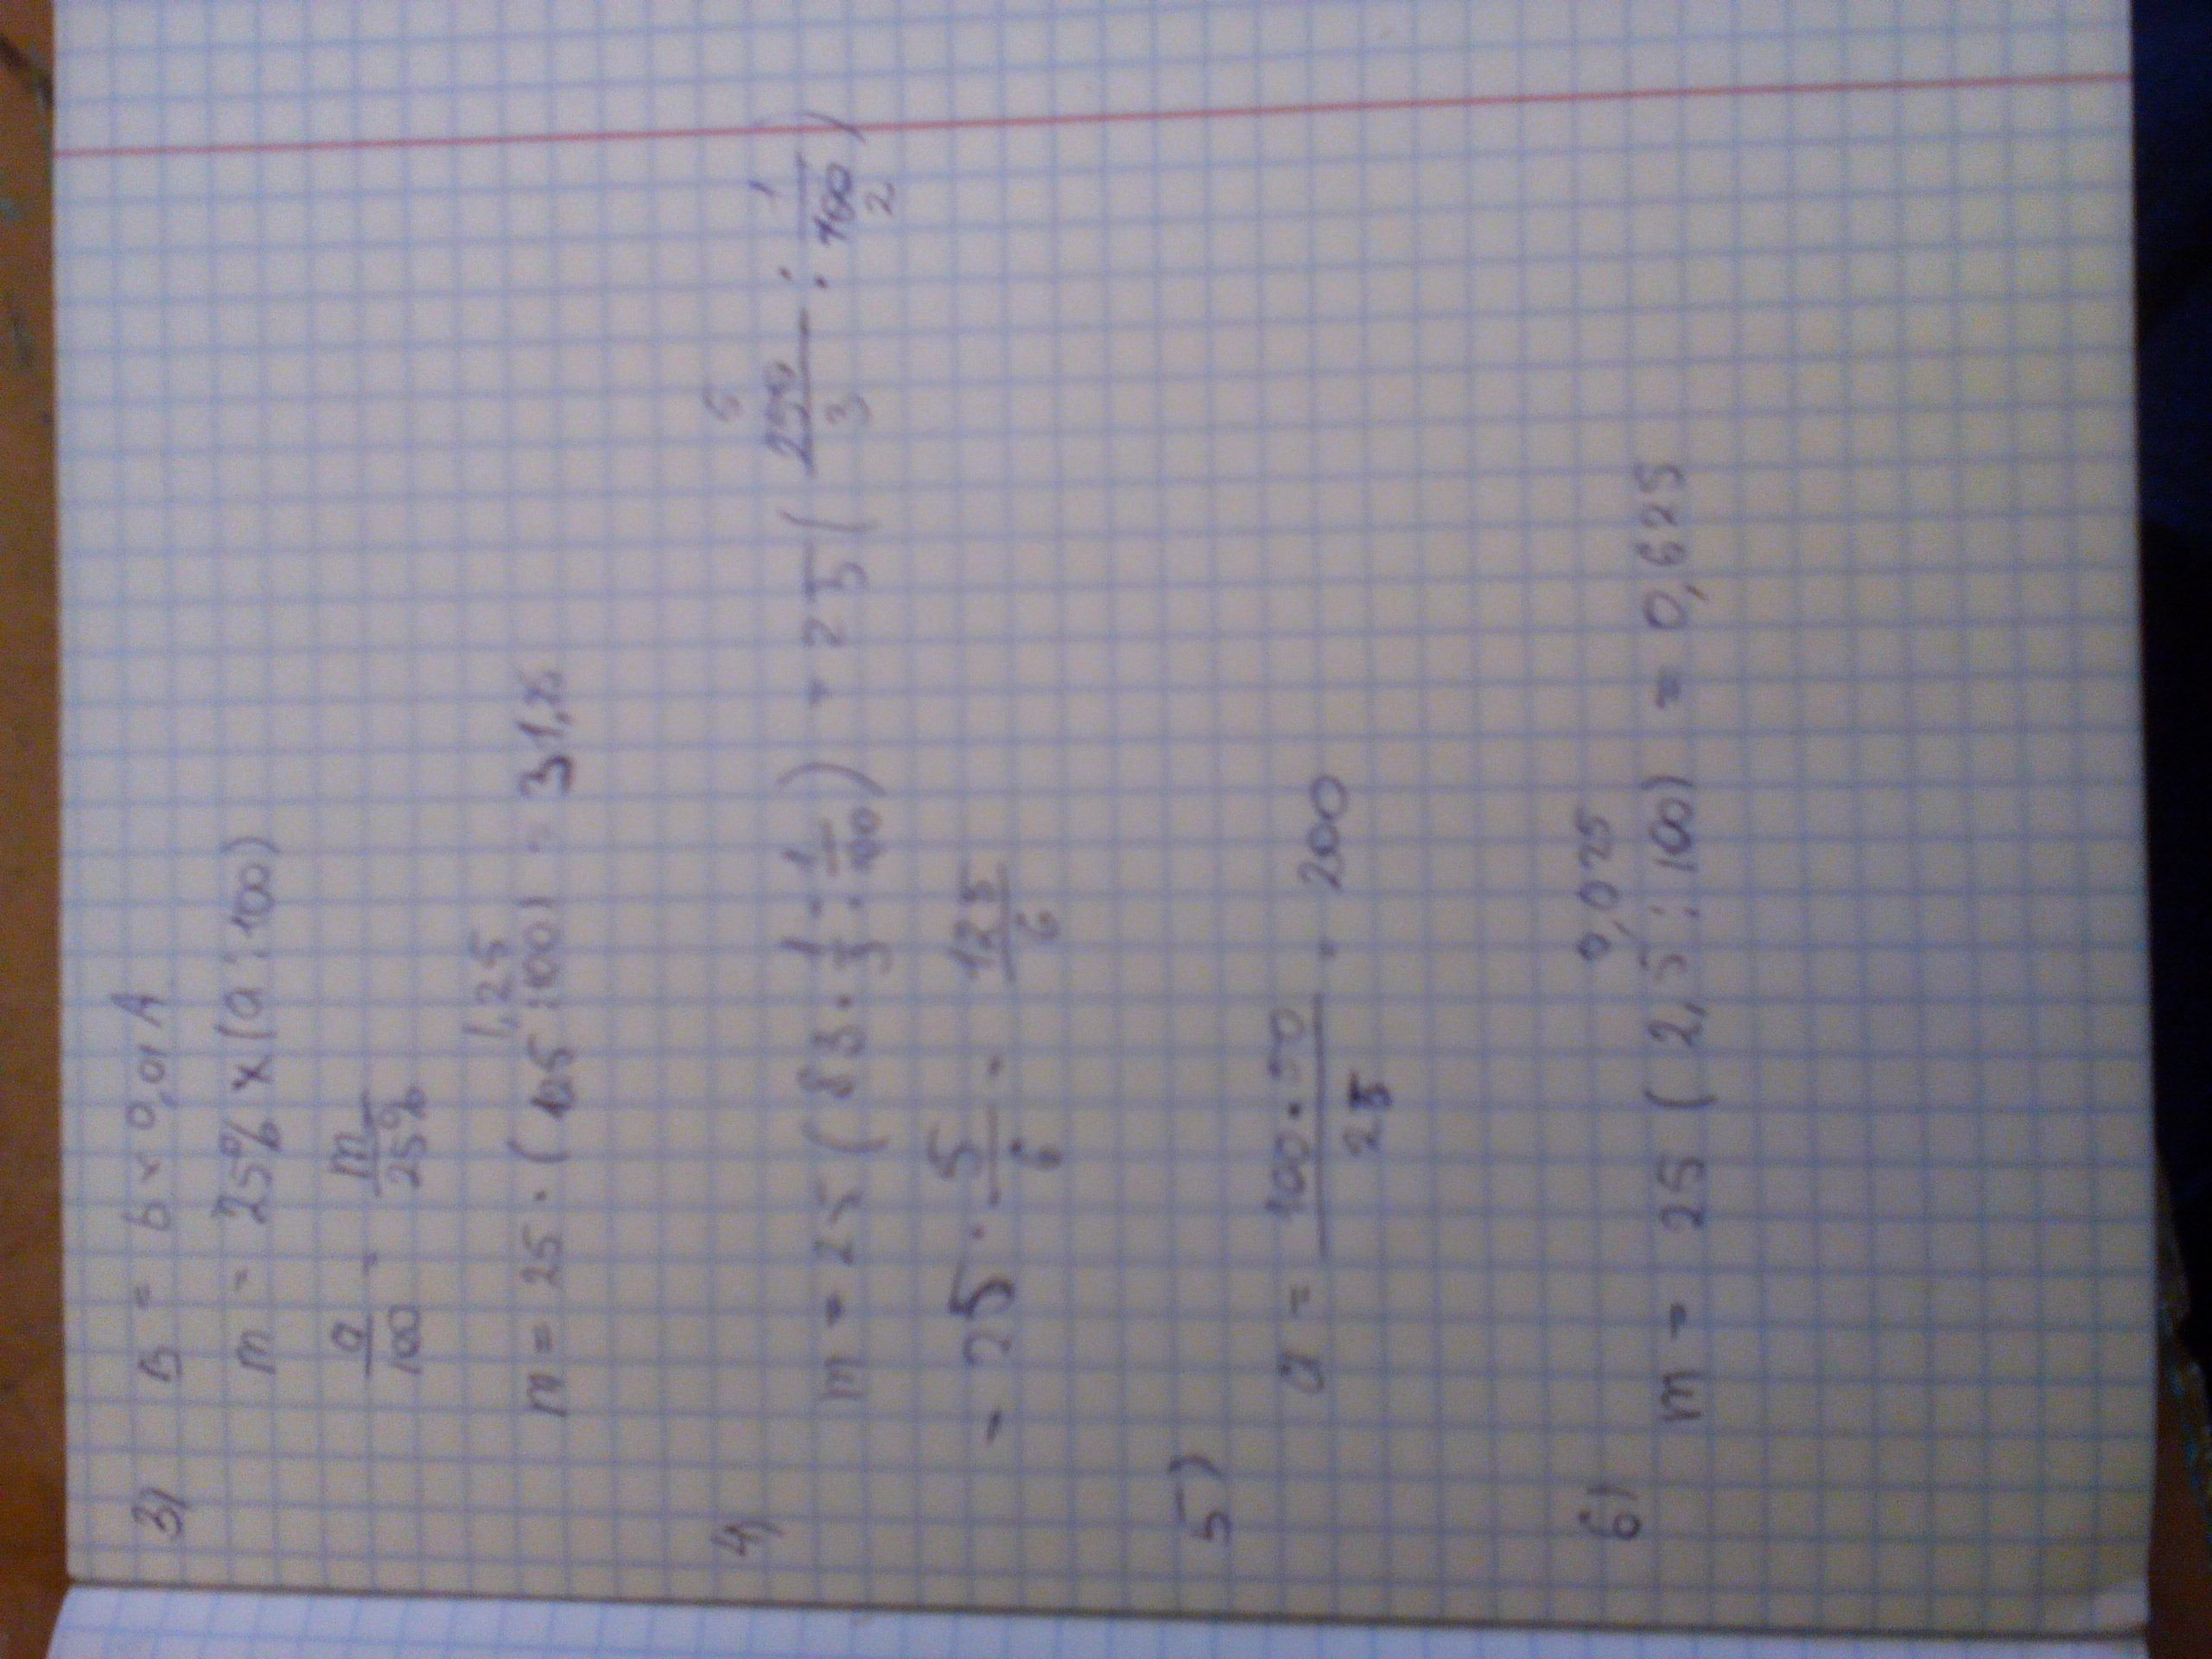 3) B = b × 0,01 A
m = 25% × (a : 100)
a/100 = m/25%
1,25
m = 25 · (125 : 100) = 31,
4)
m = 25 ( 83 · 1/3 : 1/100 ) = 25 ( 250/3 5 : 1/100 2 )
= 25 · 5/6 = 125/6
5)
a = 100 · 50/25 = 200
6) 0,025
m = 25 ( 2,5 : 100) = 0,625